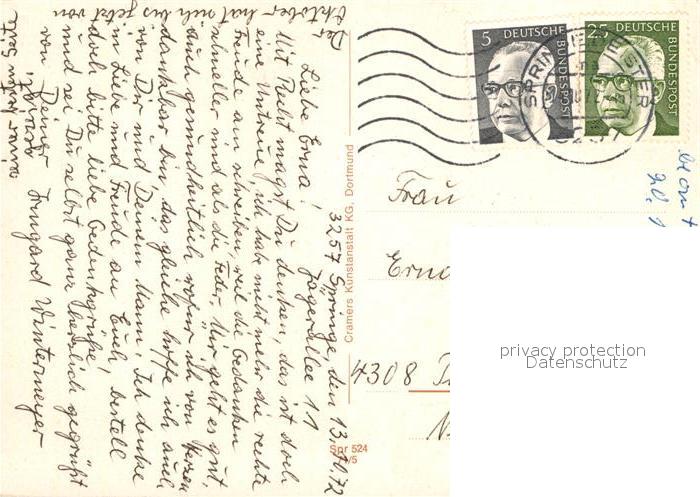 3257 Springe, den 13.10.72
Jägerallee 11
Liebe Erna!
Mit Recht magst Du denken, das ist doch
eine Untreue, ich habe nicht mehr die rechte
Freude am schreiben, weil die Gedanken
schneller sind als die Feder. Mir geht es gut,
auch gesundheitlich wofür ich von Herzen
dankbar bin, das gleiche hoffe ich auch
von Dir und Deinem Mann. Ich denke
in Liebe und Freude an Euch, bestell
doch bitte liebe Gedenkgrüße!
und sei Du selbst ganz herzlich gegrüßt
von Deiner Irmgard Wintermeyer
Der
Oktober hat sich bis jetzt von
seiner Seite
Cramers Kunstanstalt KG, Dortmund
Spr 524
/5
5 DEUTSCHE
BUNDESPOST
25 DEUTSCHE
BUNDESPOST
SPRINGE
DEISTER
3257
Frau
4308
privacy protection
Datenschutz